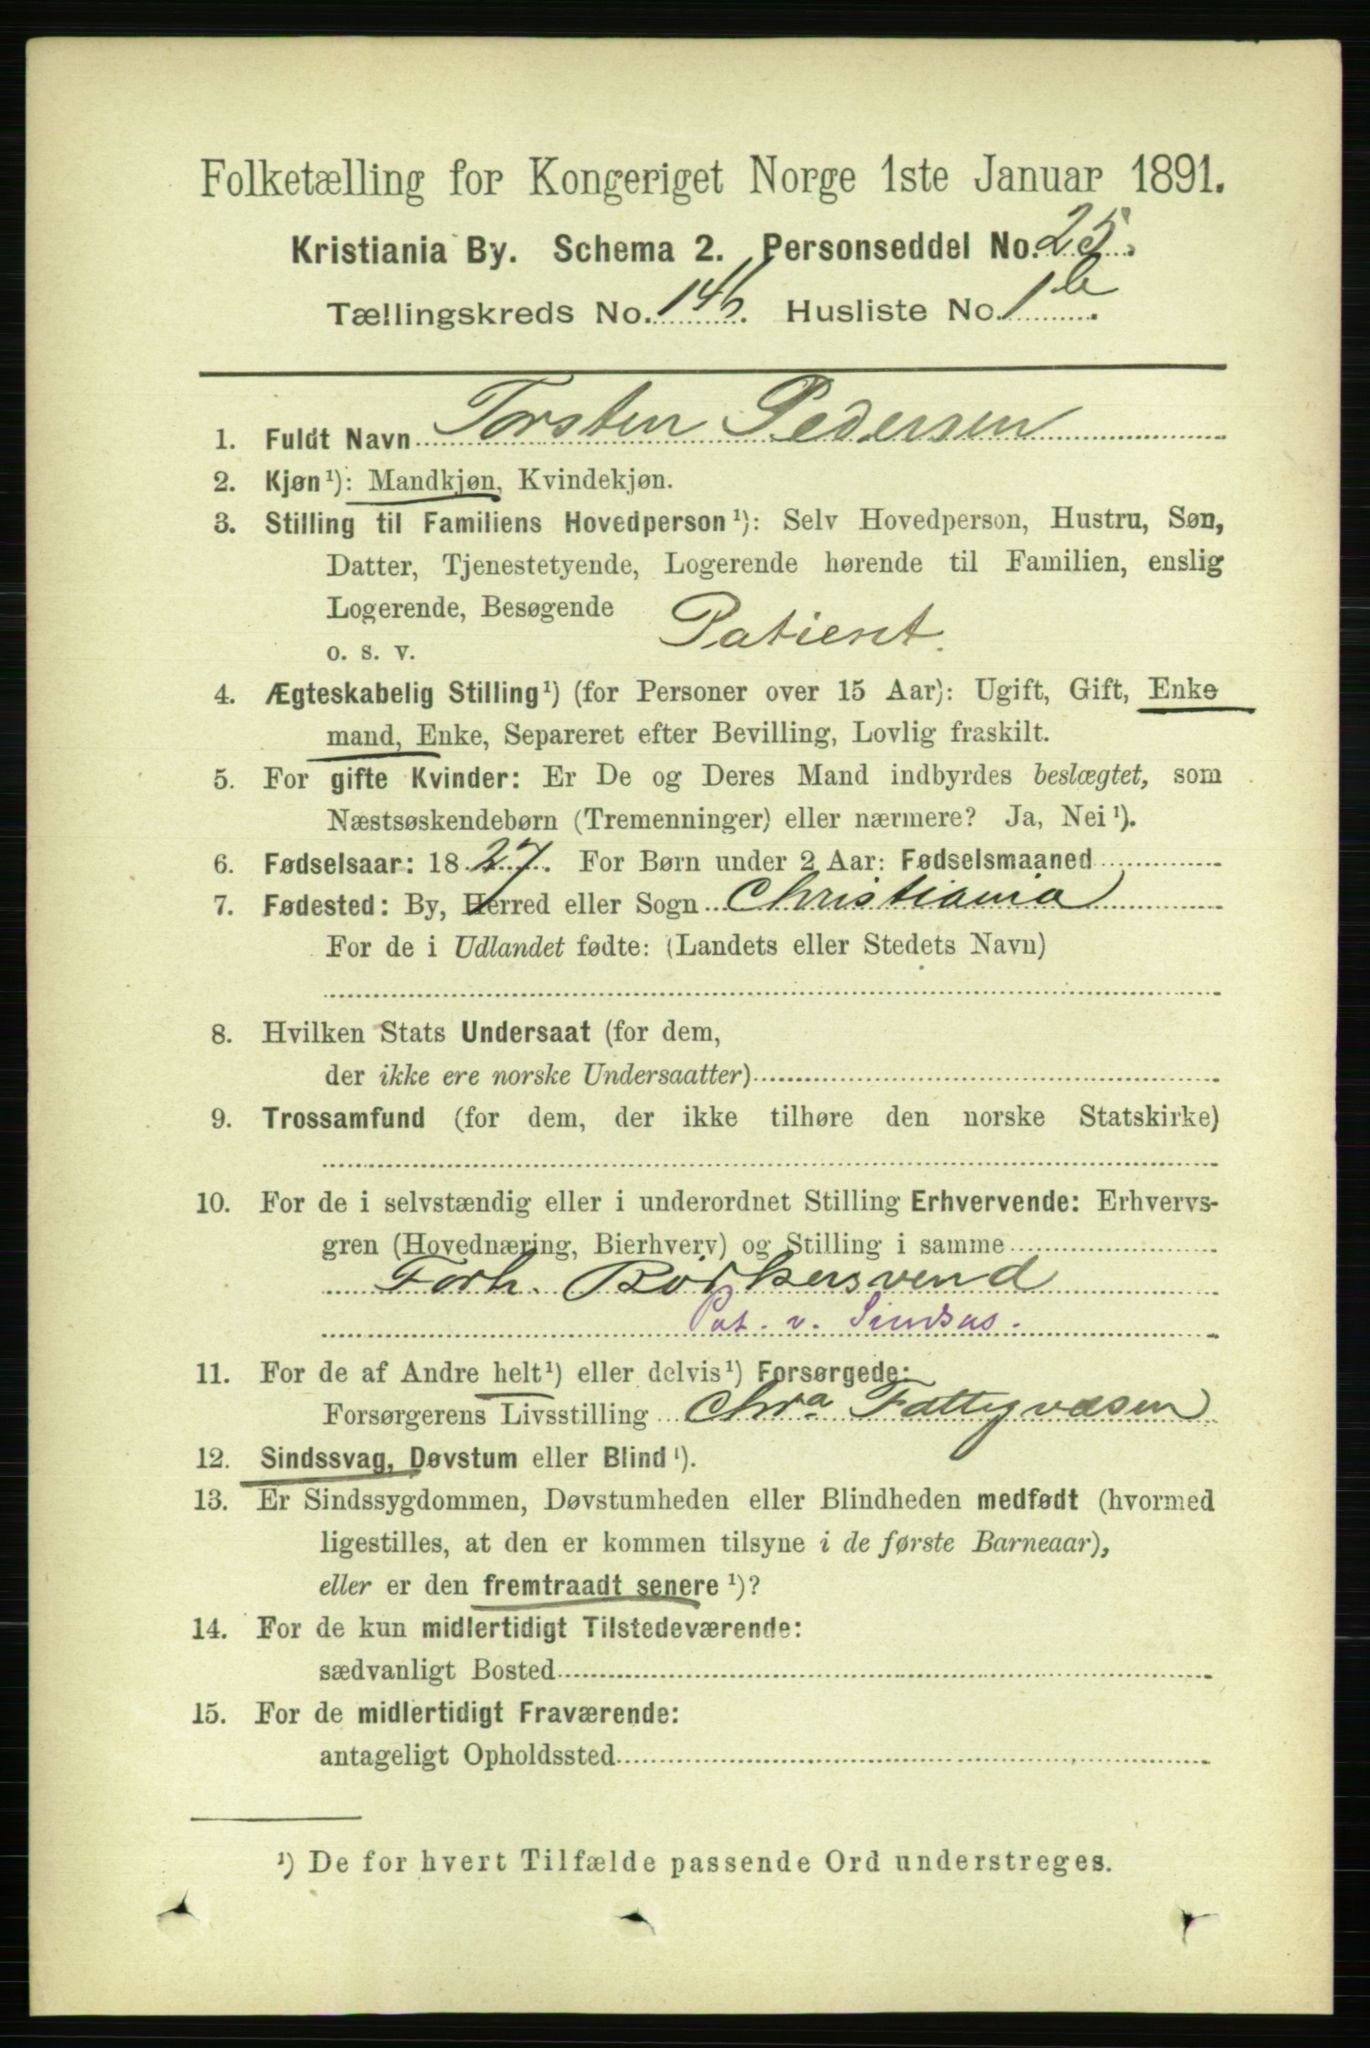 Folketælling for Kongeriget Norge 1ste Januar 1891.
Kristiania By. Schema 2. Personseddel No. 25.
Tællingskreds No. 146. Husliste No. 1b.
1. Fuldt Navn Torsten Pedersen
2. Kjøn¹): Mandkjøn, Kvindekjøn.
3. Stilling til Familiens Hovedperson¹): Selv Hovedperson, Hustru, Søn,
Datter, Tjenestetyende, Logerende hørende til Familien, enslig
Logerende, Besøgende
o. s. v. Patient.
4. Ægteskabelig Stilling¹) (for Personer over 15 Aar): Ugift, Gift, Enke
mand, Enke, Separeret efter Bevilling, Lovlig fraskilt.
5. For gifte Kvinder: Er De og Deres Mand indbyrdes beslægtet, som
Næstsøskendebørn (Tremenninger) eller nærmere? Ja, Nei¹).
6. Fødselsaar: 1827. For Børn under 2 Aar: Fødselsmaaned
7. Fødested: By, Herred eller Sogn Christiania
For de i Udlandet fødte: (Landets eller Stedets Navn)
8. Hvilken Stats Undersaat (for dem,
der ikke ere norske Undersaatter)
9. Trossamfund (for dem, der ikke tilhøre den norske Statskirke)
10. For de i selvstændig eller i underordnet Stilling Erhvervende: Erhvervs-
gren (Hovednæring, Bierhverv) og Stilling i samme
Forh. Bödkersvend
Pat. v. Sindsas.
11. For de af Andre helt¹) eller delvis¹) Forsørgede:
Forsørgerens Livsstilling Chra Fattigvæsen
12. Sindssvag, Døvstum eller Blind¹).
13. Er Sindssygdommen, Døvstumheden eller Blindheden medfødt (hvormed
ligestilles, at den er kommen tilsyne i de første Barneaar),
eller er den fremtraadt senere¹)?
14. For de kun midlertidigt Tilstedeværende:
sædvanligt Bosted
15. For de midlertidigt Fraværende:
antageligt Opholdssted
¹) De for hvert Tilfælde passende Ord understreges.